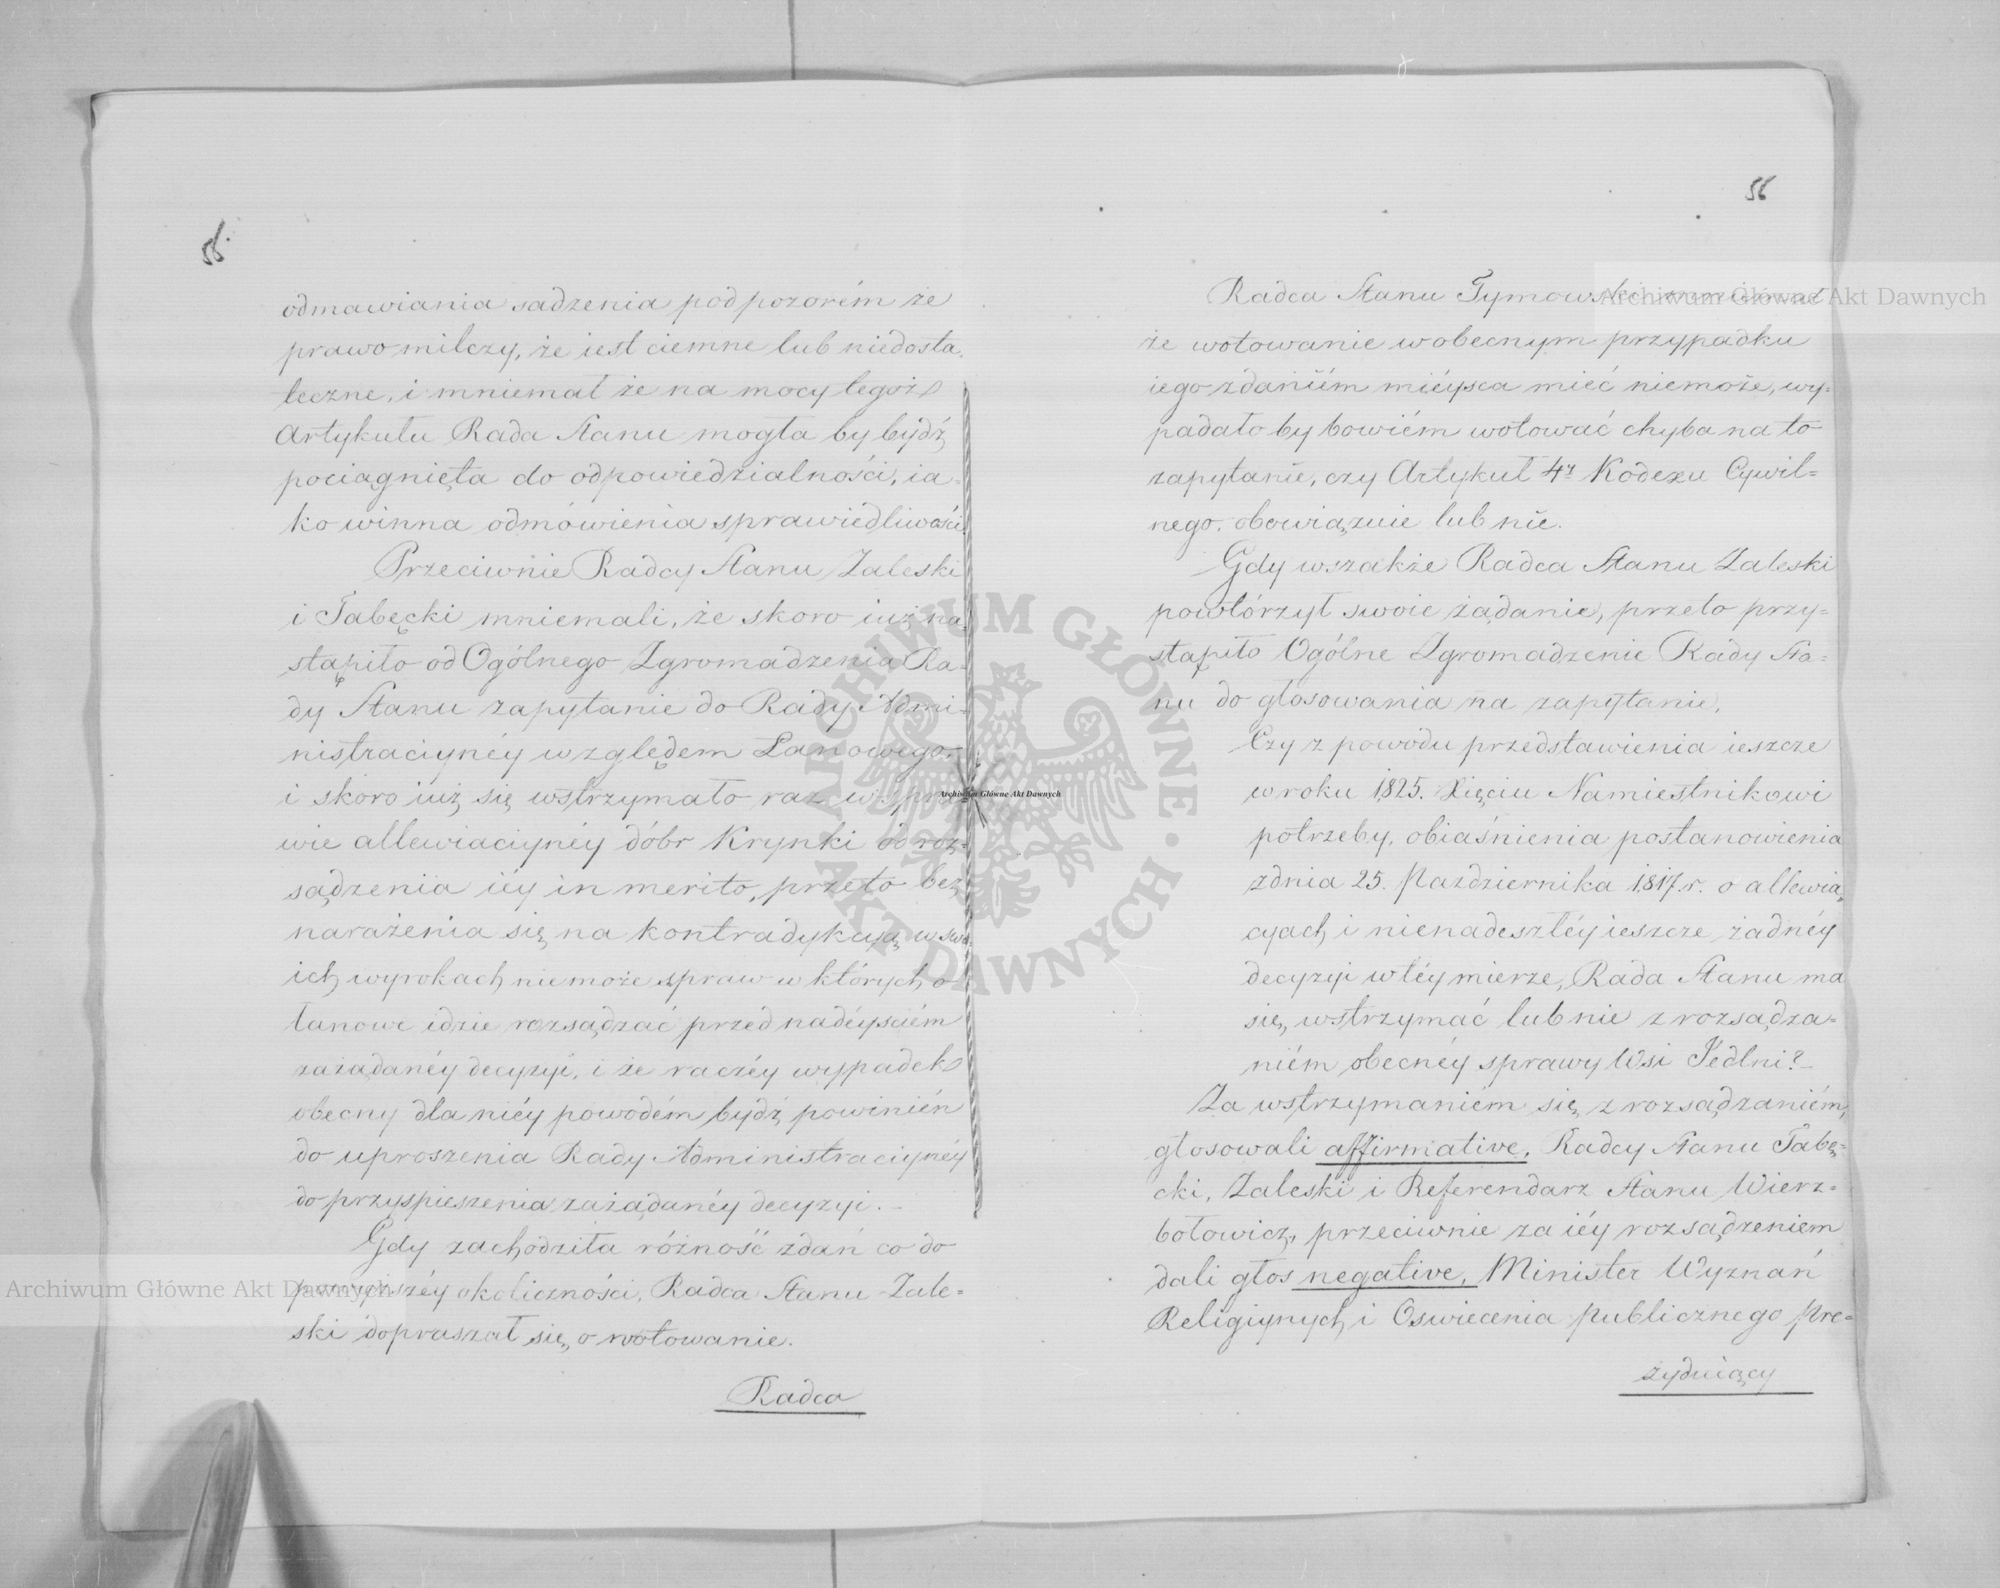 55.
odmawiania sadzenia pod pozorém że
prawo milczy, że iest ciemne lub niedosta-
teczne, i mniemał że na mocy tegoż
Artykułu Rada Stanu mogła by bydź
pociągnięta do odpowiedzialności, ia-
ko winna odmówienia sprawiedliwości.
Przeciwnie Radcy Stanu Zaleski
i Tabęcki mniemali, że skoro iuż na-
stąpiło od Ogólnego Zgromadzenia Ra-
dy Stanu zapytanie do Rady Admi-
nistraciynéy względem Łanowego,
i skoro iuż się wstrzymało raz w spra-
wie allewiaciynéy dóbr Krynki od roz-
sądzenia iéy in merito, przeto bez
narażenia się na kontradykcyą w swo-
ich wyrokach niemoże spraw w których o
łanowe idzie rozsądzać przed nadéysciém
zażądanéy decyzyi, i że raczéy wypadek
obecny dla niéy powodém bydź powinién
do uproszenia Rady Administraciynéy
do przyspieszenia zażądanéy decyzyi.
Gdy zachodziła różność zdań co do
powyższéy okoliczności, Radca Stanu Zale-
ski dopraszał się o wotowanie.
Radca
56
Radca Stanu Tymowski mniemał
że wotowanie w obecnym przypadku
iego zdaniém miéysca mieć niemoże, wy-
padało by bowiém wotować chyba na to
zapytanie, czy Artykuł 4ty Kodexu Cywil-
nego obowiązuie lub nie.
Gdy wszakże Radca Stanu Zaleski
powtórzył swoie żądanie, przeto przy-
stąpiło Ogólne Zgromadzenie Rady Sta-
nu do głosowania na zapytanie,
Czy z powodu przedstawienia ieszcze
w roku 1825. Xięciu Namiestnikowi
potrzeby, obiaśnienia postanowienia
z dnia 25. Października 1817. r. o allewia-
cyach i nienadeszłéy ieszcze żadnéy
decyzyi w téy mierze, Rada Stanu ma
się wstrzymać lub nie z rozsądza-
niém obecnéy sprawy Wsi Jedlni?
Za wstrzymaniém się z rozsądzaniém,
głosowali affirmative, Radcy Stanu Tabę-
cki, Zaleski i Referendarz Stanu Wierz-
bołowicz, przeciwnie za iéy rozsądzeniem
dali głos negative, Minister Wyznań
Religiynych i Oswiecenia Publicznego Pre-
zyduiący
Archiwum Główne Akt Dawnych
Archiwum Główne Akt Dawnych
Archiwum Główne Akt Dawnych
ARCHIWUM GŁÓWNE AKT DAWNYCH